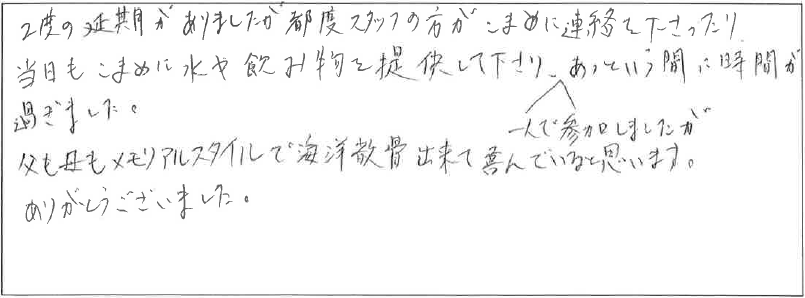 2度の延期がありましたが都度スタッフの方がこまめに連絡を下さったり
当日もこまめに水や飲み物を提供して下さり、あっという間に時間が
過ぎました。
一人で参加しましたが
父も母もメモリアルスタイルで海洋散骨出来て喜んでいると思います。
ありがとうございました。